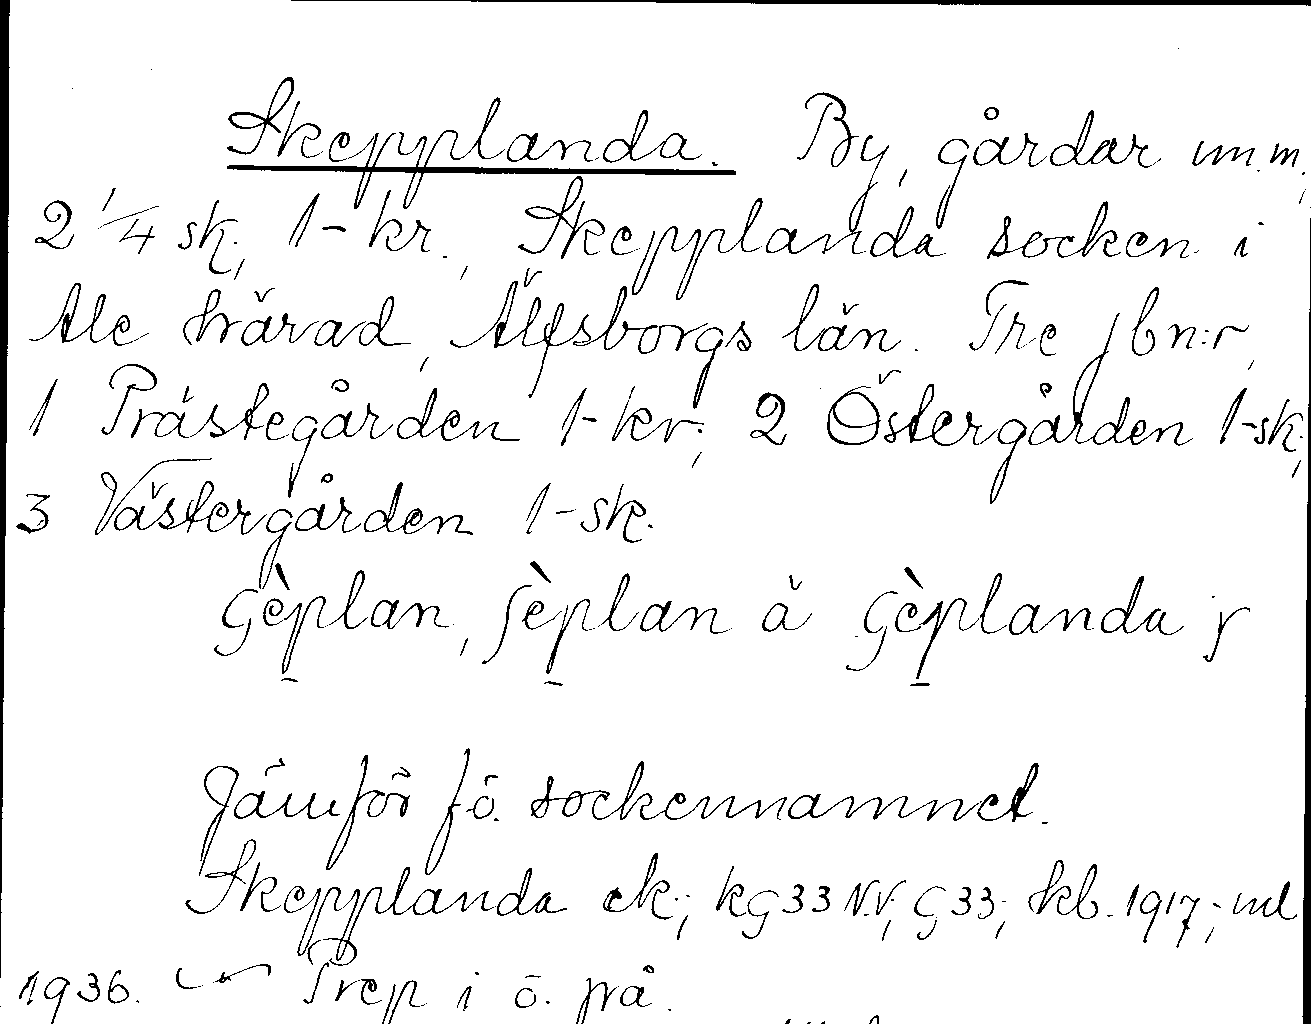 Skepplanda. By, gårdar m.m.,
2 1/4 sk., 1- kr., Skepplanda socken i
Ale härad, Älfsborgs län. Tre jbn:r,
1 Prästegården 1- kr., 2 Östergården 1-sk.,
3 Västergården 1-sk.
Gèplan, ʃèplan å Gèplanda
Jämför fö. sockennamnet.
Skepplanda ek.; kg 33 N.V., G 33; kb. 1917; ml
1936. Prep i ö. på